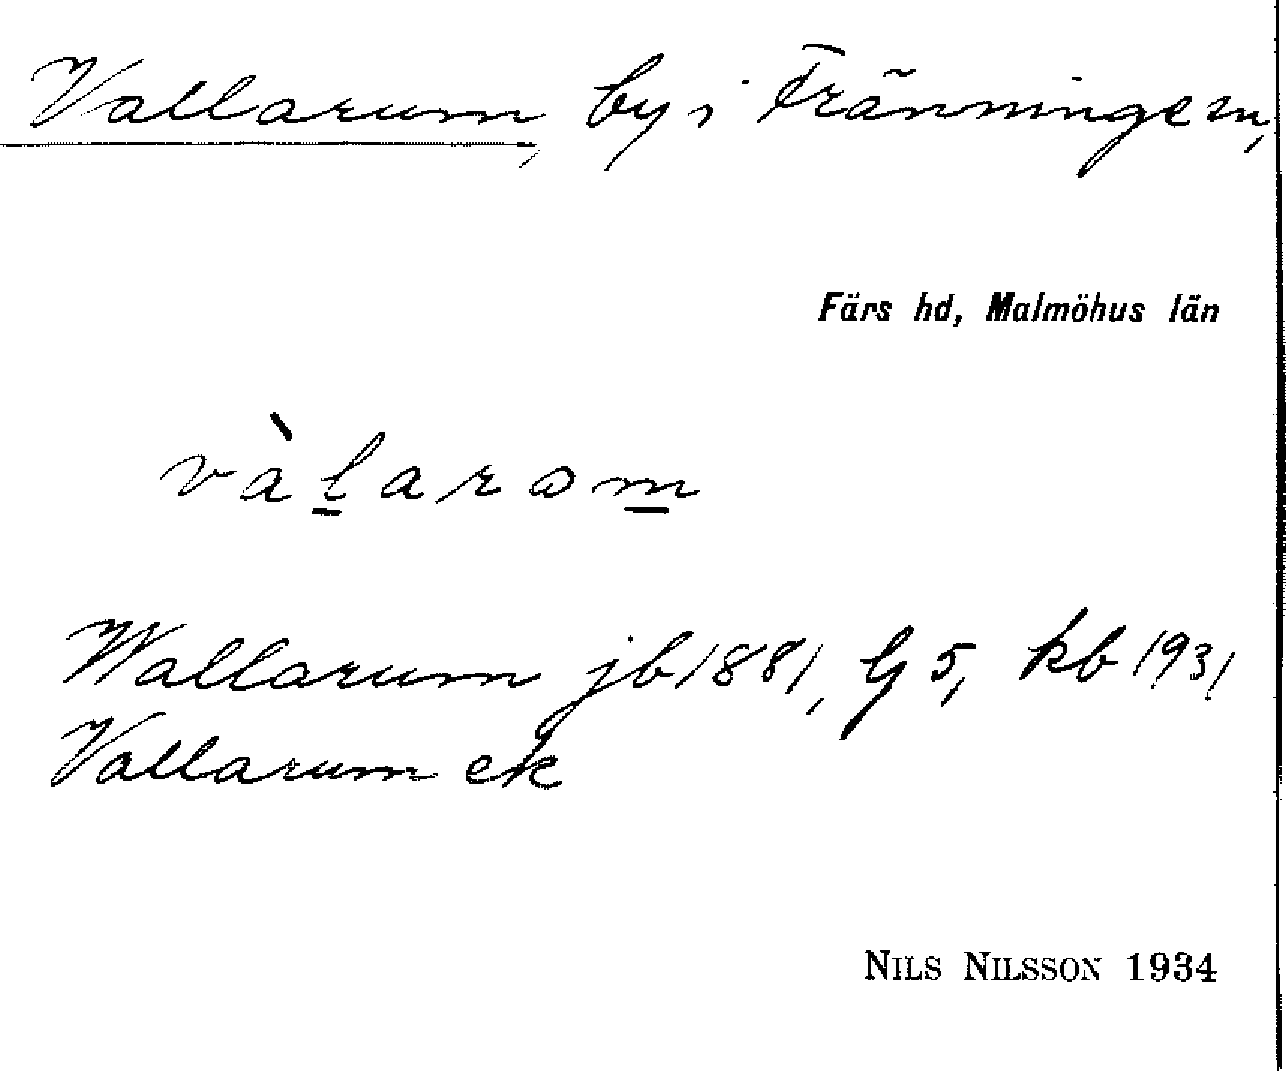 Vallarum, by i Tränningem,
Färs hd, Malmöhus län
vàl̲arɷm̲
Wallarum jb 1881, G 5, kb 1931
Vallarum ek
NILS NILSSON 1934